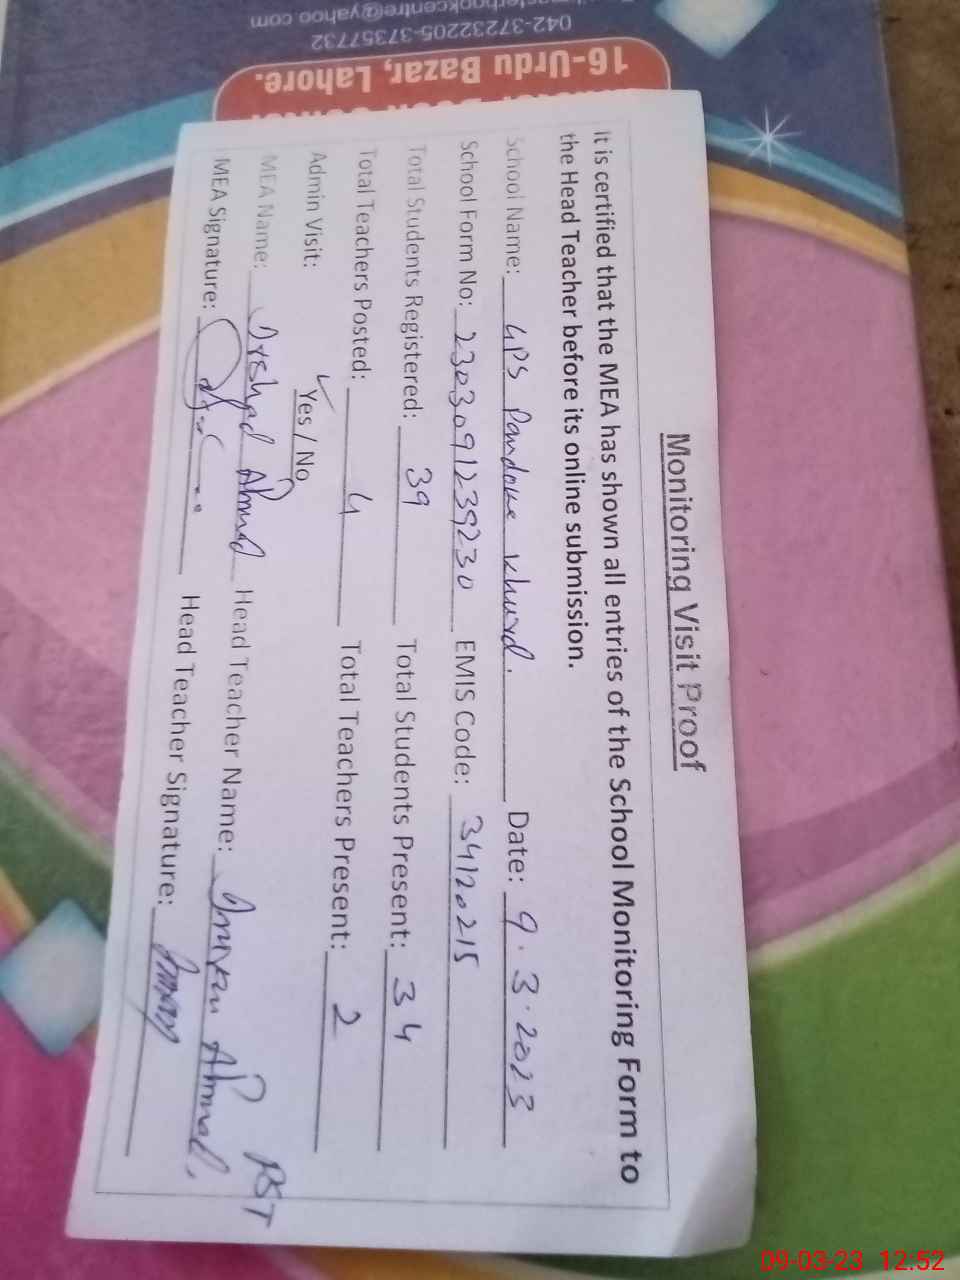 Monitoring Visit Proof
It is certified that the MEA has shown all entries of the School Monitoring Form to
the Head Teacher before its online submission.
School Name: GPS Pandoke Khurd. Date: 9.3.2023
School Form No: 2303091239230 EMIS Code: 34120215
Total Students Registered: 39 Total Students Present: 34
Total Teachers Posted: 4 Total Teachers Present: 2
Admin Visit: Yes / No
MEA Name: Arshad Ahmad Head Teacher Name: Imran Ahmad, PST
MEA Signature: Head Teacher Signature:
16-Urdu Bazar, Lahore.
042-37232205-37357732
09-03-23 12:52